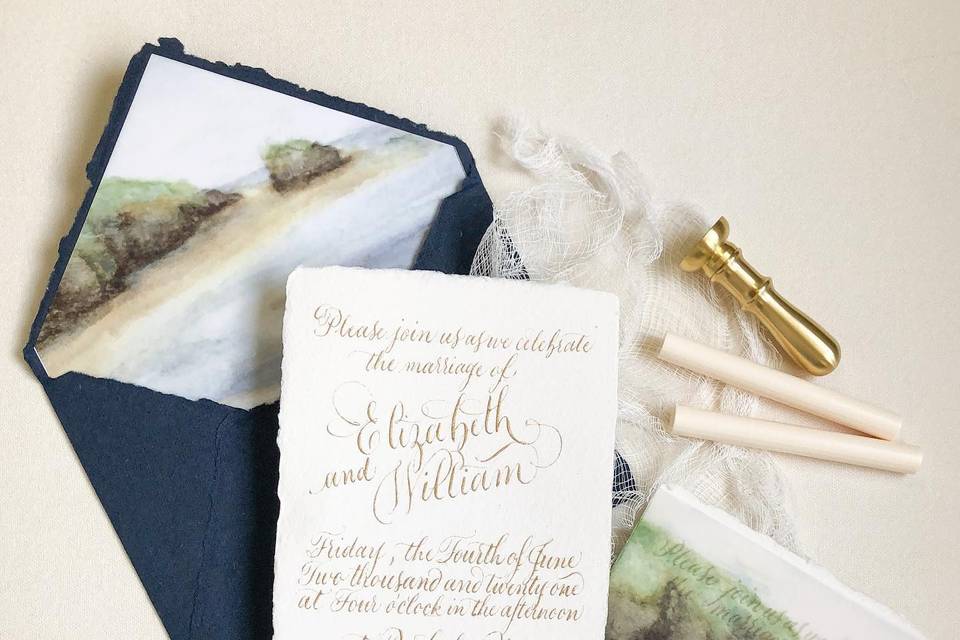 Please join us as we celebrate
the marriage of
Elizabeth
and William
Friday, the Fourth of June
Two thousand and twenty one
at Four o'clock in the afternoon
Please join
the marri